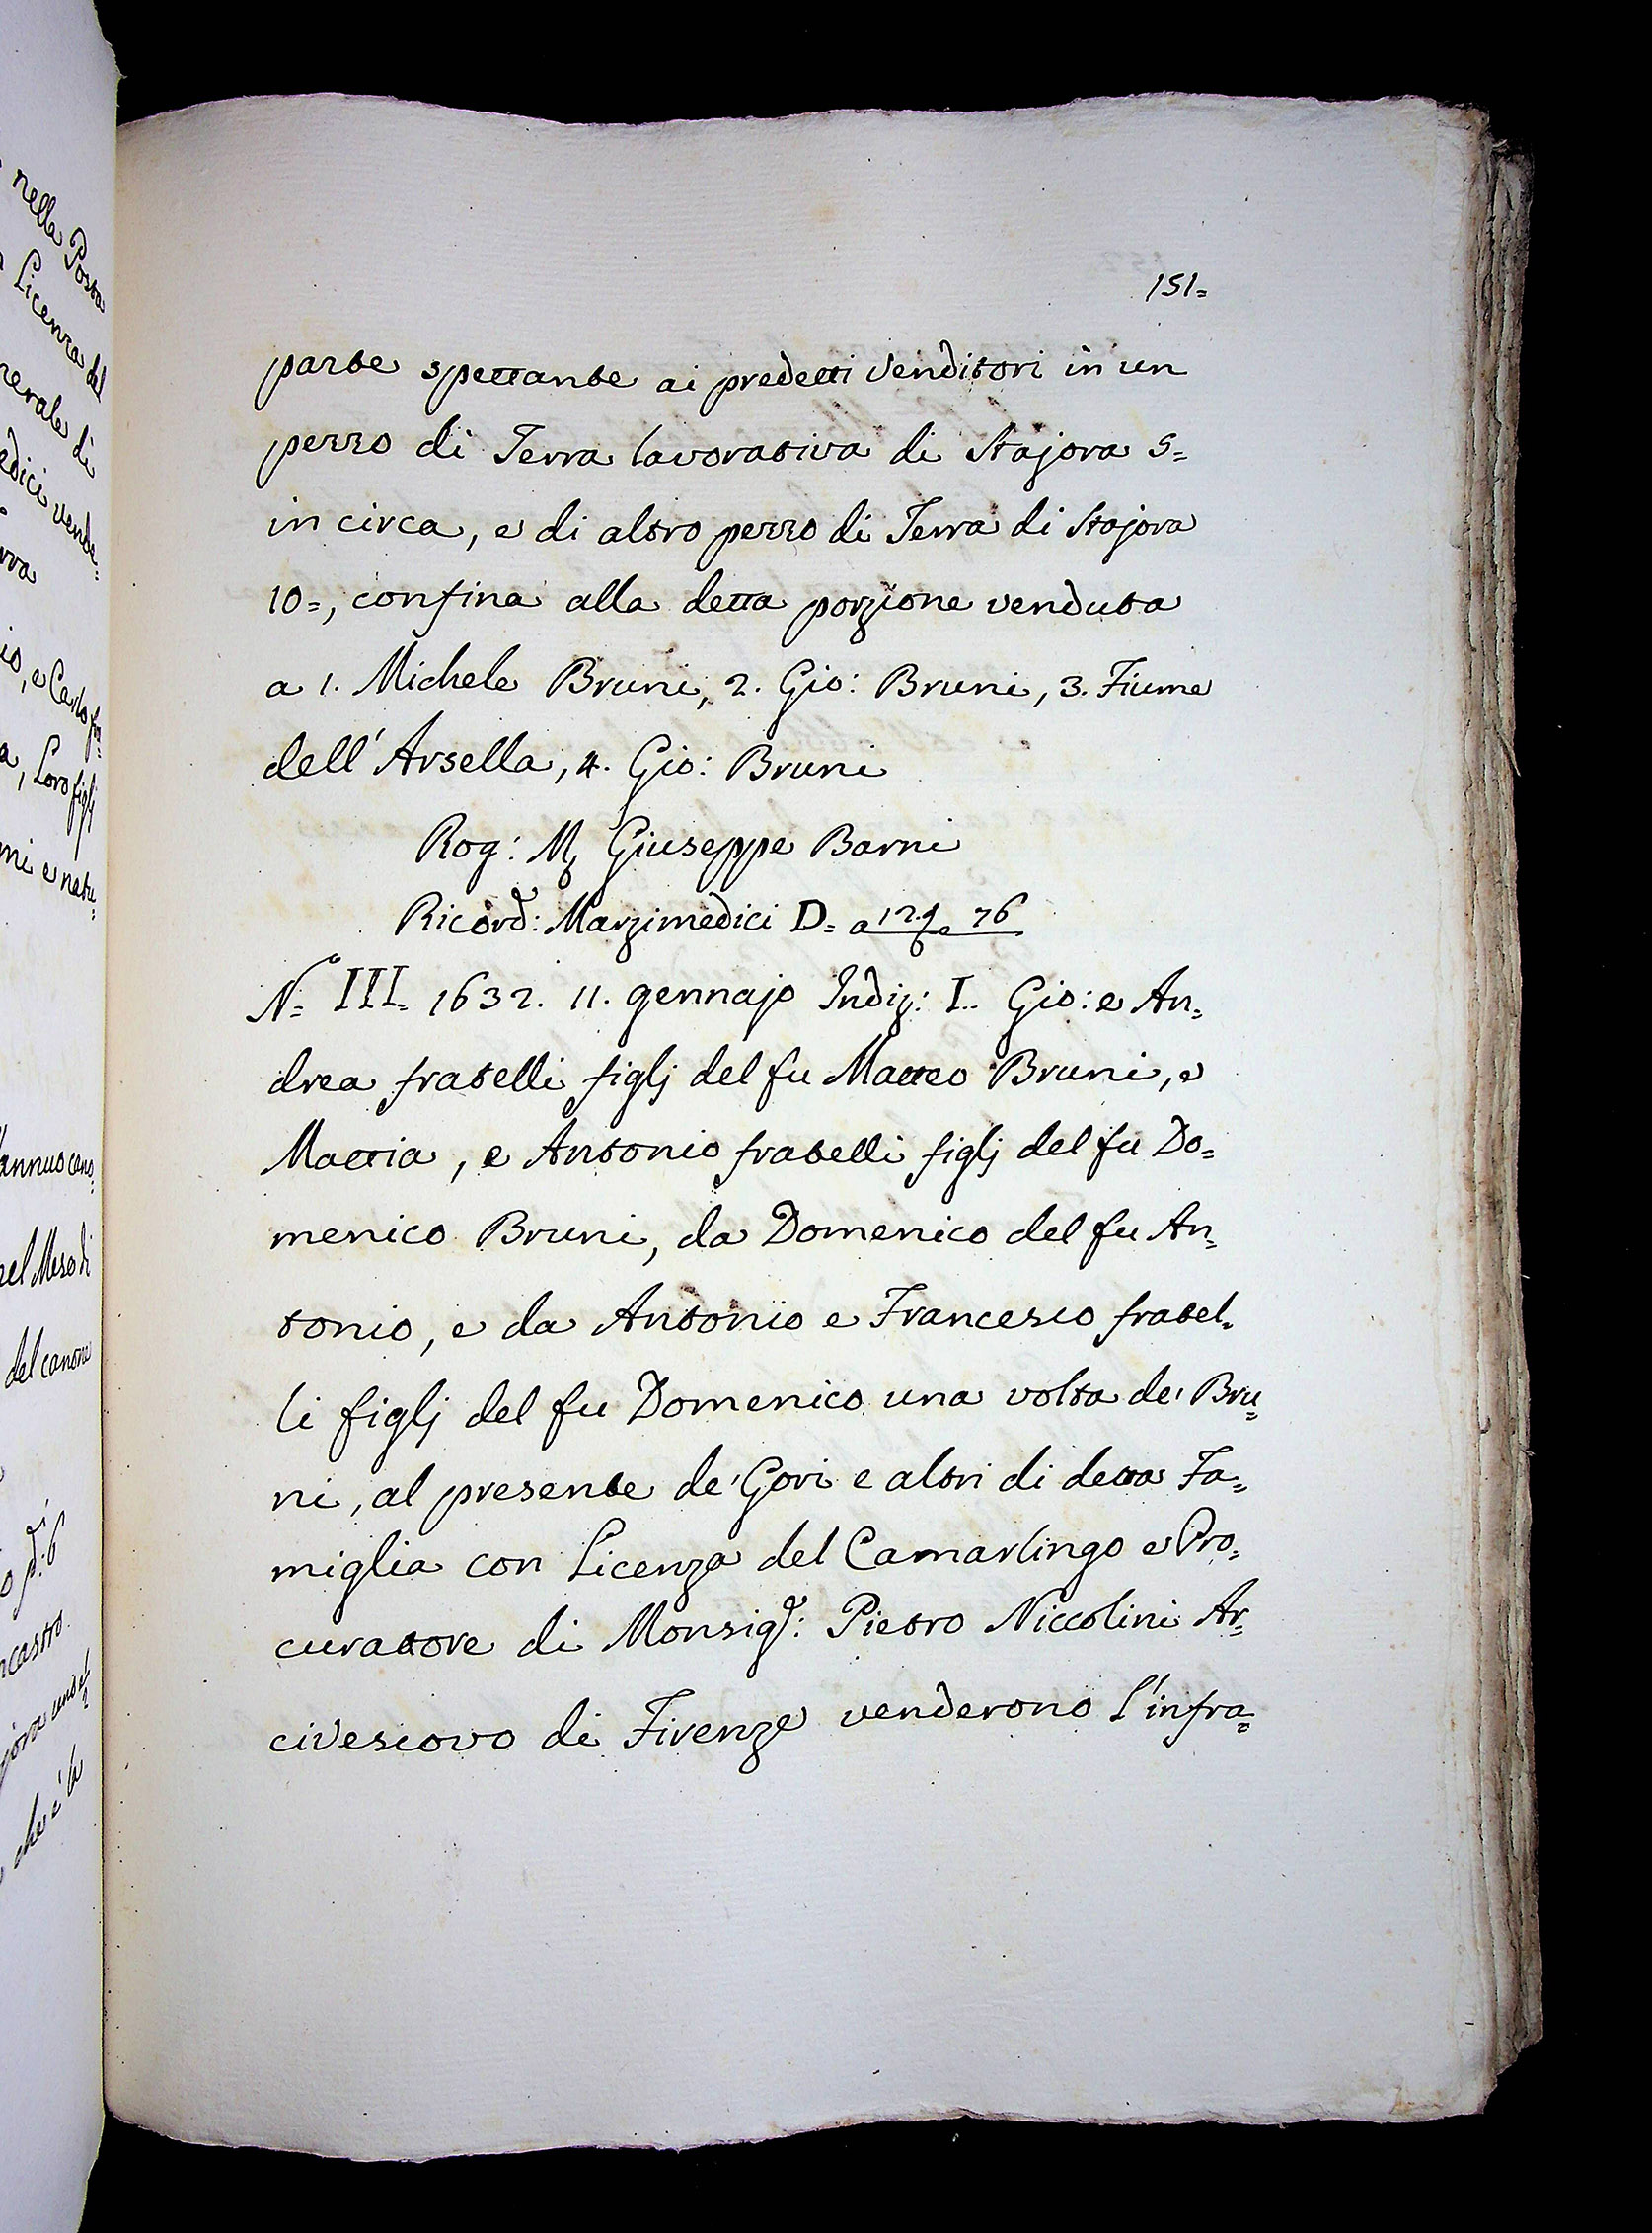 nella Posta
Licenza del
nerale di
edici vende=
rra
io, e Carlo fra=
a, Loro figlj
mi e natu=
annuo cano=
nel Mese di
del canone
ncastro
che è la
151=
parte spettante ai predetti Venditori in un
pezzo di Terra lavorativa di Stajora 5=
in circa, e di altro pezzo di Terra di Stajora
10=, confina alla detta porzione venduta
a 1. Michele Bruni, 2. Gio: Bruni, 3. Fiume
dell' Arsella, 4. Gio: Bruni
Rog: Giuseppe Barni
Ricord: Marzimedici D= a 76
N= III= 1632. 11. gennajo Indiz: I.. Gio: e An=
drea fratelli figlj del fu Matteo Bruni, e
Mattia, e Antonio fratelli figlj del fu Do=
menico Bruni, da Domenico del fu An=
tonio, e da Antonio e Francesco fratel=
li figlj del fu Domenico una volta de' Bru=
ni, al presente de' Gori e altri di detta Fa=
miglia con Licenza del Camarlingo e Pro=
curatore di Monsig.r: Pietro Niccolini Ar=
civescovo di Firenze venderono l'infra=